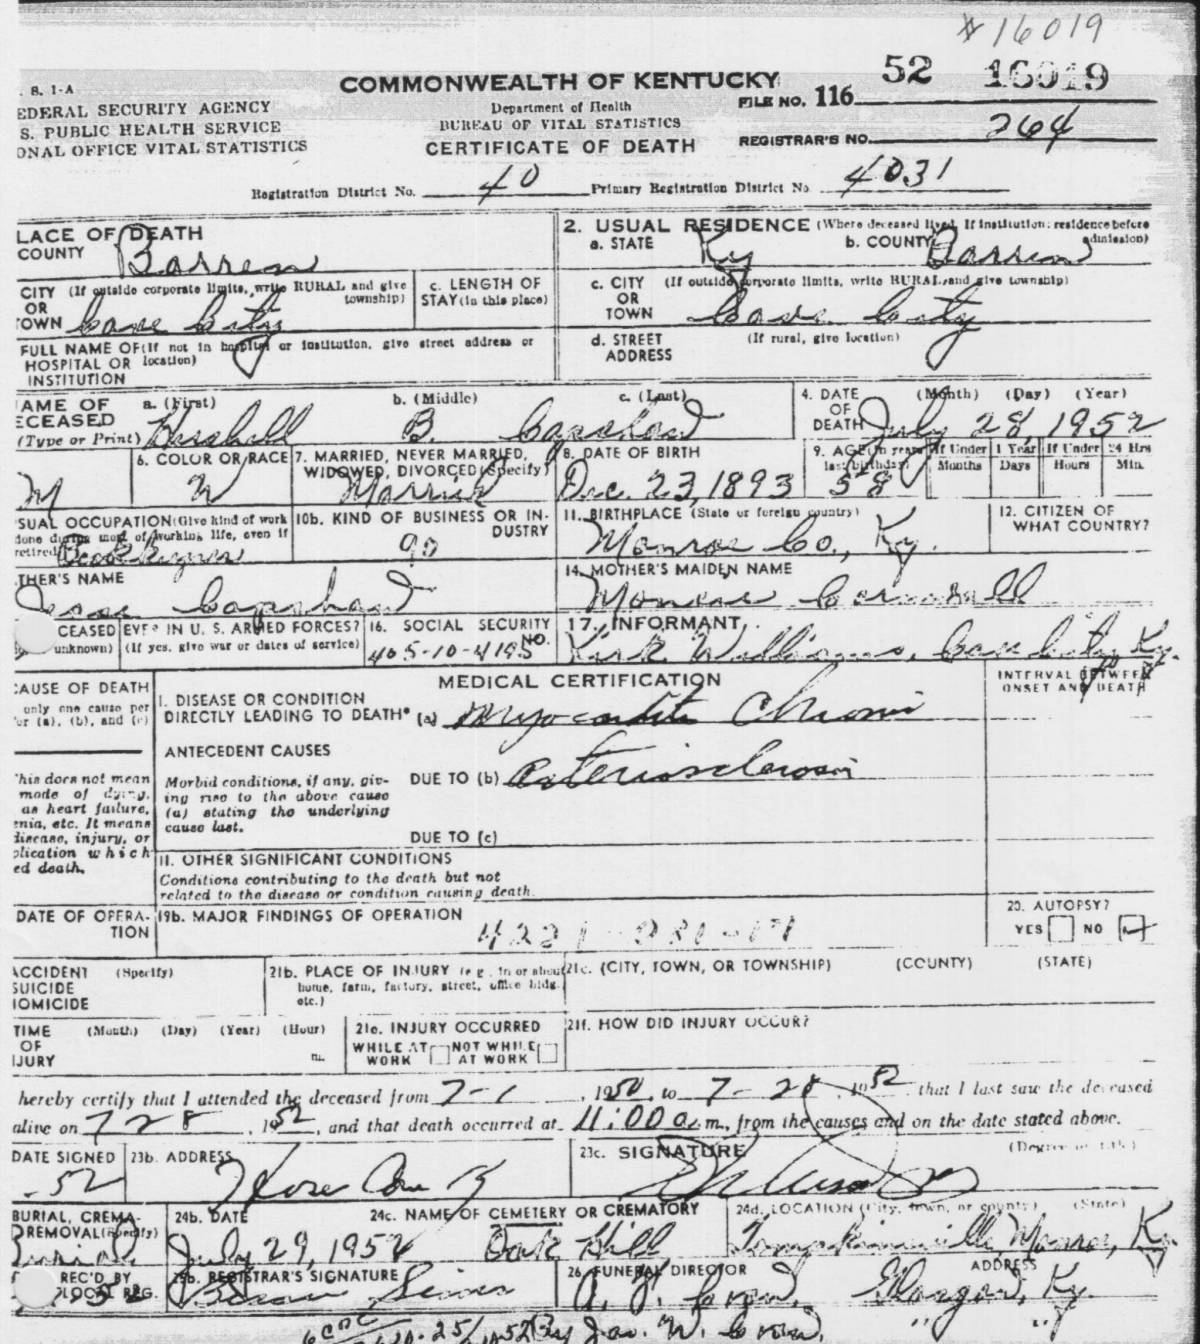 #16019
52 16019
S. 1-A
COMMONWEALTH OF KENTUCKY
FILE NO. 116
EDERAL SECURITY AGENCY
Department of Health
S. PUBLIC HEALTH SERVICE
BUREAU OF VITAL STATISTICS
REGISTRAR'S NO. 264
ONAL OFFICE VITAL STATISTICS
CERTIFICATE OF DEATH
Registration District No. 40 Primary Registration District No 4031
LACE OF DEATH
COUNTY Barren
2. USUAL RESIDENCE (Where deceased lived. If institution: residence before admission)
a. STATE Ky b. COUNTY Barren
CITY OR TOWN (If outside corporate limits, write RURAL and give township) Cave City
c. LENGTH OF STAY (in this place)
c. CITY OR TOWN (If outside corporate limits, write RURAL and give township) Cave City
FULL NAME OF HOSPITAL OR INSTITUTION (If not in hospital or institution, give street address or location)
d. STREET ADDRESS (If rural, give location)
AME OF ECEASED (Type or Print)
a. (First) b. (Middle) B. c. (Last) Capshaw
4. DATE OF DEATH (Month) (Day) (Year) July 28, 1952
M
6. COLOR OR RACE W
7. MARRIED, NEVER MARRIED, WIDOWED, DIVORCED (Specify) Married
8. DATE OF BIRTH Dec. 23, 1893
9. AGE (In years last birthday) 58
If Under 1 Year Months Days
If Under 24 Hrs Hours Min.
SUAL OCCUPATION (Give kind of work done during most of working life, even if retired)
10b. KIND OF BUSINESS OR INDUSTRY 90
11. BIRTHPLACE (State or foreign country) Monroe Co., Ky.
12. CITIZEN OF WHAT COUNTRY?
THER'S NAME Capshaw
14. MOTHER'S MAIDEN NAME
CEASED EVER IN U. S. ARMED FORCES?
unknown) (If yes, give war or dates of service)
16. SOCIAL SECURITY NO.
405-10-4195
17. INFORMANT
Kirk Williams, Cave City Ky.
CAUSE OF DEATH
only one cause per
or (a), (b), and (c)
MEDICAL CERTIFICATION
INTERVAL BETWEEN ONSET AND DEATH
I. DISEASE OR CONDITION
DIRECTLY LEADING TO DEATH* (a) Myocarditis Chronic
ANTECEDENT CAUSES
Morbid conditions, if any, giving rise to the above cause (a) stating the underlying cause last.
DUE TO (b) arteriosclerosis
DUE TO (c)
his does not mean
mode of dying,
as heart failure,
enia, etc. It means
disease, injury, or
plication which
ed death.
II. OTHER SIGNIFICANT CONDITIONS
Conditions contributing to the death but not
related to the disease or condition causing death.
DATE OF OPERATION
19b. MAJOR FINDINGS OF OPERATION
20. AUTOPSY?
YES NO
ACCIDENT (Specify)
SUICIDE
HOMICIDE
21b. PLACE OF INJURY (e.g., in or about home, farm, factory, street, office bldg. etc.)
21c. (CITY, TOWN, OR TOWNSHIP) (COUNTY) (STATE)
TIME OF NJURY (Month) (Day) (Year) (Hour) m.
21e. INJURY OCCURRED
WHILE AT WORK NOT WHILE AT WORK
21f. HOW DID INJURY OCCUR?
hereby certify that I attended the deceased from 7-1, 1950, to 7-28, 1952 that I last saw the deceased
alive on 7 28, 1952, and that death occurred at 11:00 a.m., from the causes and on the date stated above.
DATE SIGNED 52
23b. ADDRESS
23c. SIGNATURE (Degree or title)
BURIAL, CREMA-
REMOVAL (Specify)
Burial
24b. DATE July 29, 1952
24c. NAME OF CEMETERY OR CREMATORY Oak Hill
24d. LOCATION (City, town, or county) (State) Tompkinsville, Monroe, Ky.
REC'D BY
LOCAL REG.
25b. REGISTRAR'S SIGNATURE
26. FUNERAL DIRECTOR ADDRESS
Glasgow, Ky.
By Jas. W. Crow,